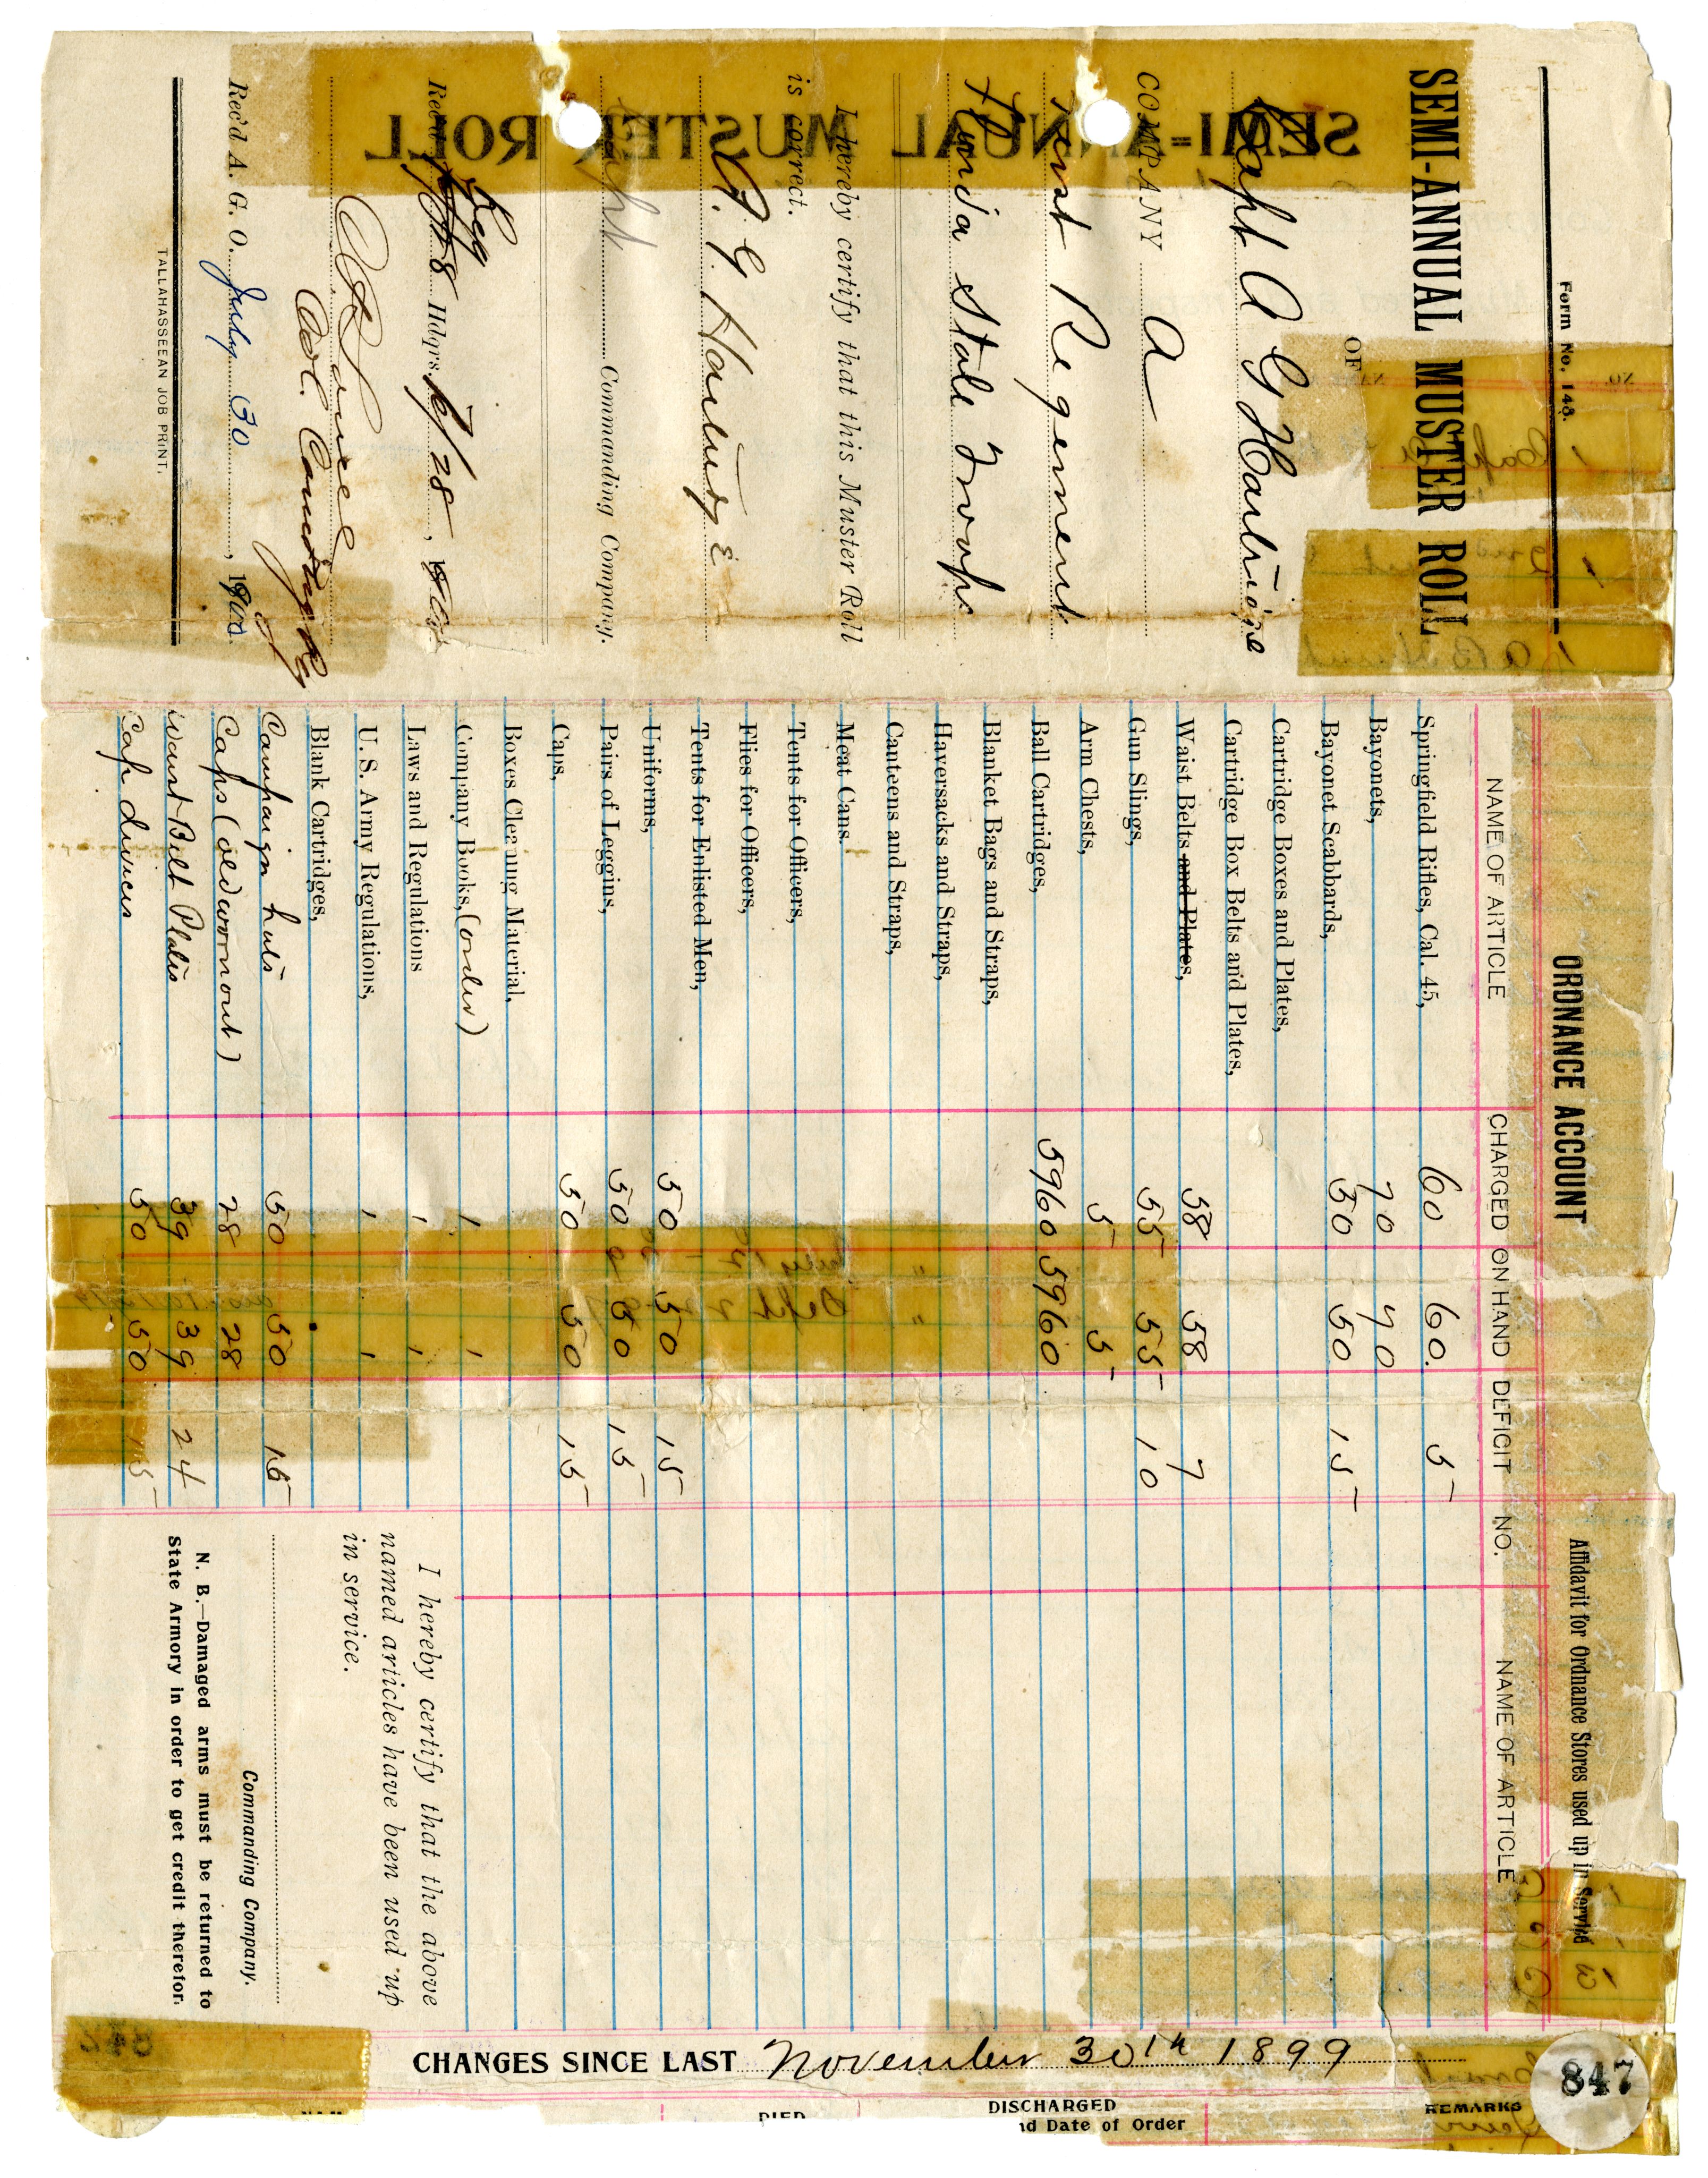 Form No. 148.
SEMI-ANNUAL MUSTER ROLL
OF
Capt A G Hartridge
COMPANY A
First Regiment
Florida State Troops
I hereby certify that this Muster Roll
is correct.
A. G. Hartridge
Capt
Commanding Company.
Rec'd Reg Hdqrs. 7/28,
Col. Comdg
Rec'd A. G. O. July 30, 1900.
TALLAHASSEEAN JOB PRINT.
SEMI=ANNUAL MUSTER ROLL
ORDNANCE ACCOUNT
NAME OF ARTICLE CHARGED ON HAND DEFICIT
Springfield Rifles, Cal. 45, 60 60. 5
Bayonets, 70 70
Bayonet Scabbards, 50 50 15
Cartridge Boxes and Plates,
Cartridge Box Belts and Plates,
Waist Belts and Plates, 58 58 7
Gun Slings, 55 55 10
Arm Chests, 5 5
Ball Cartridges, 5960 5960
Blanket Bags and Straps,
Haversacks and Straps,
Canteens and Straps,
Meat Cans.
Tents for Officers,
Flies for Officers,
Tents for Enlisted Men,
Uniforms, 50 50 15
Pairs of Leggins, 50 50 15
Caps, 50 50 15
Boxes Cleaning Material,
Company Books, (order) 1 1
Laws and Regulations 1 1
U. S. Army Regulations, 1 1
Blank Cartridges,
Campaign hats 50 50 15
Caps (old wornout) 28 28
Waist Belt Plates 39 39 24
Cap devices 50 50 15
Affidavit for Ordnance Stores used up in Service
NO. NAME OF ARTICLE
I hereby certify that the above
named articles have been used up
in service.
Commanding Company.
N. B.—Damaged arms must be returned to
State Armory in order to get credit therefor.
CHANGES SINCE LAST November 30th 1899
847
DIED
DISCHARGED
nd Date of Order
REMARKS